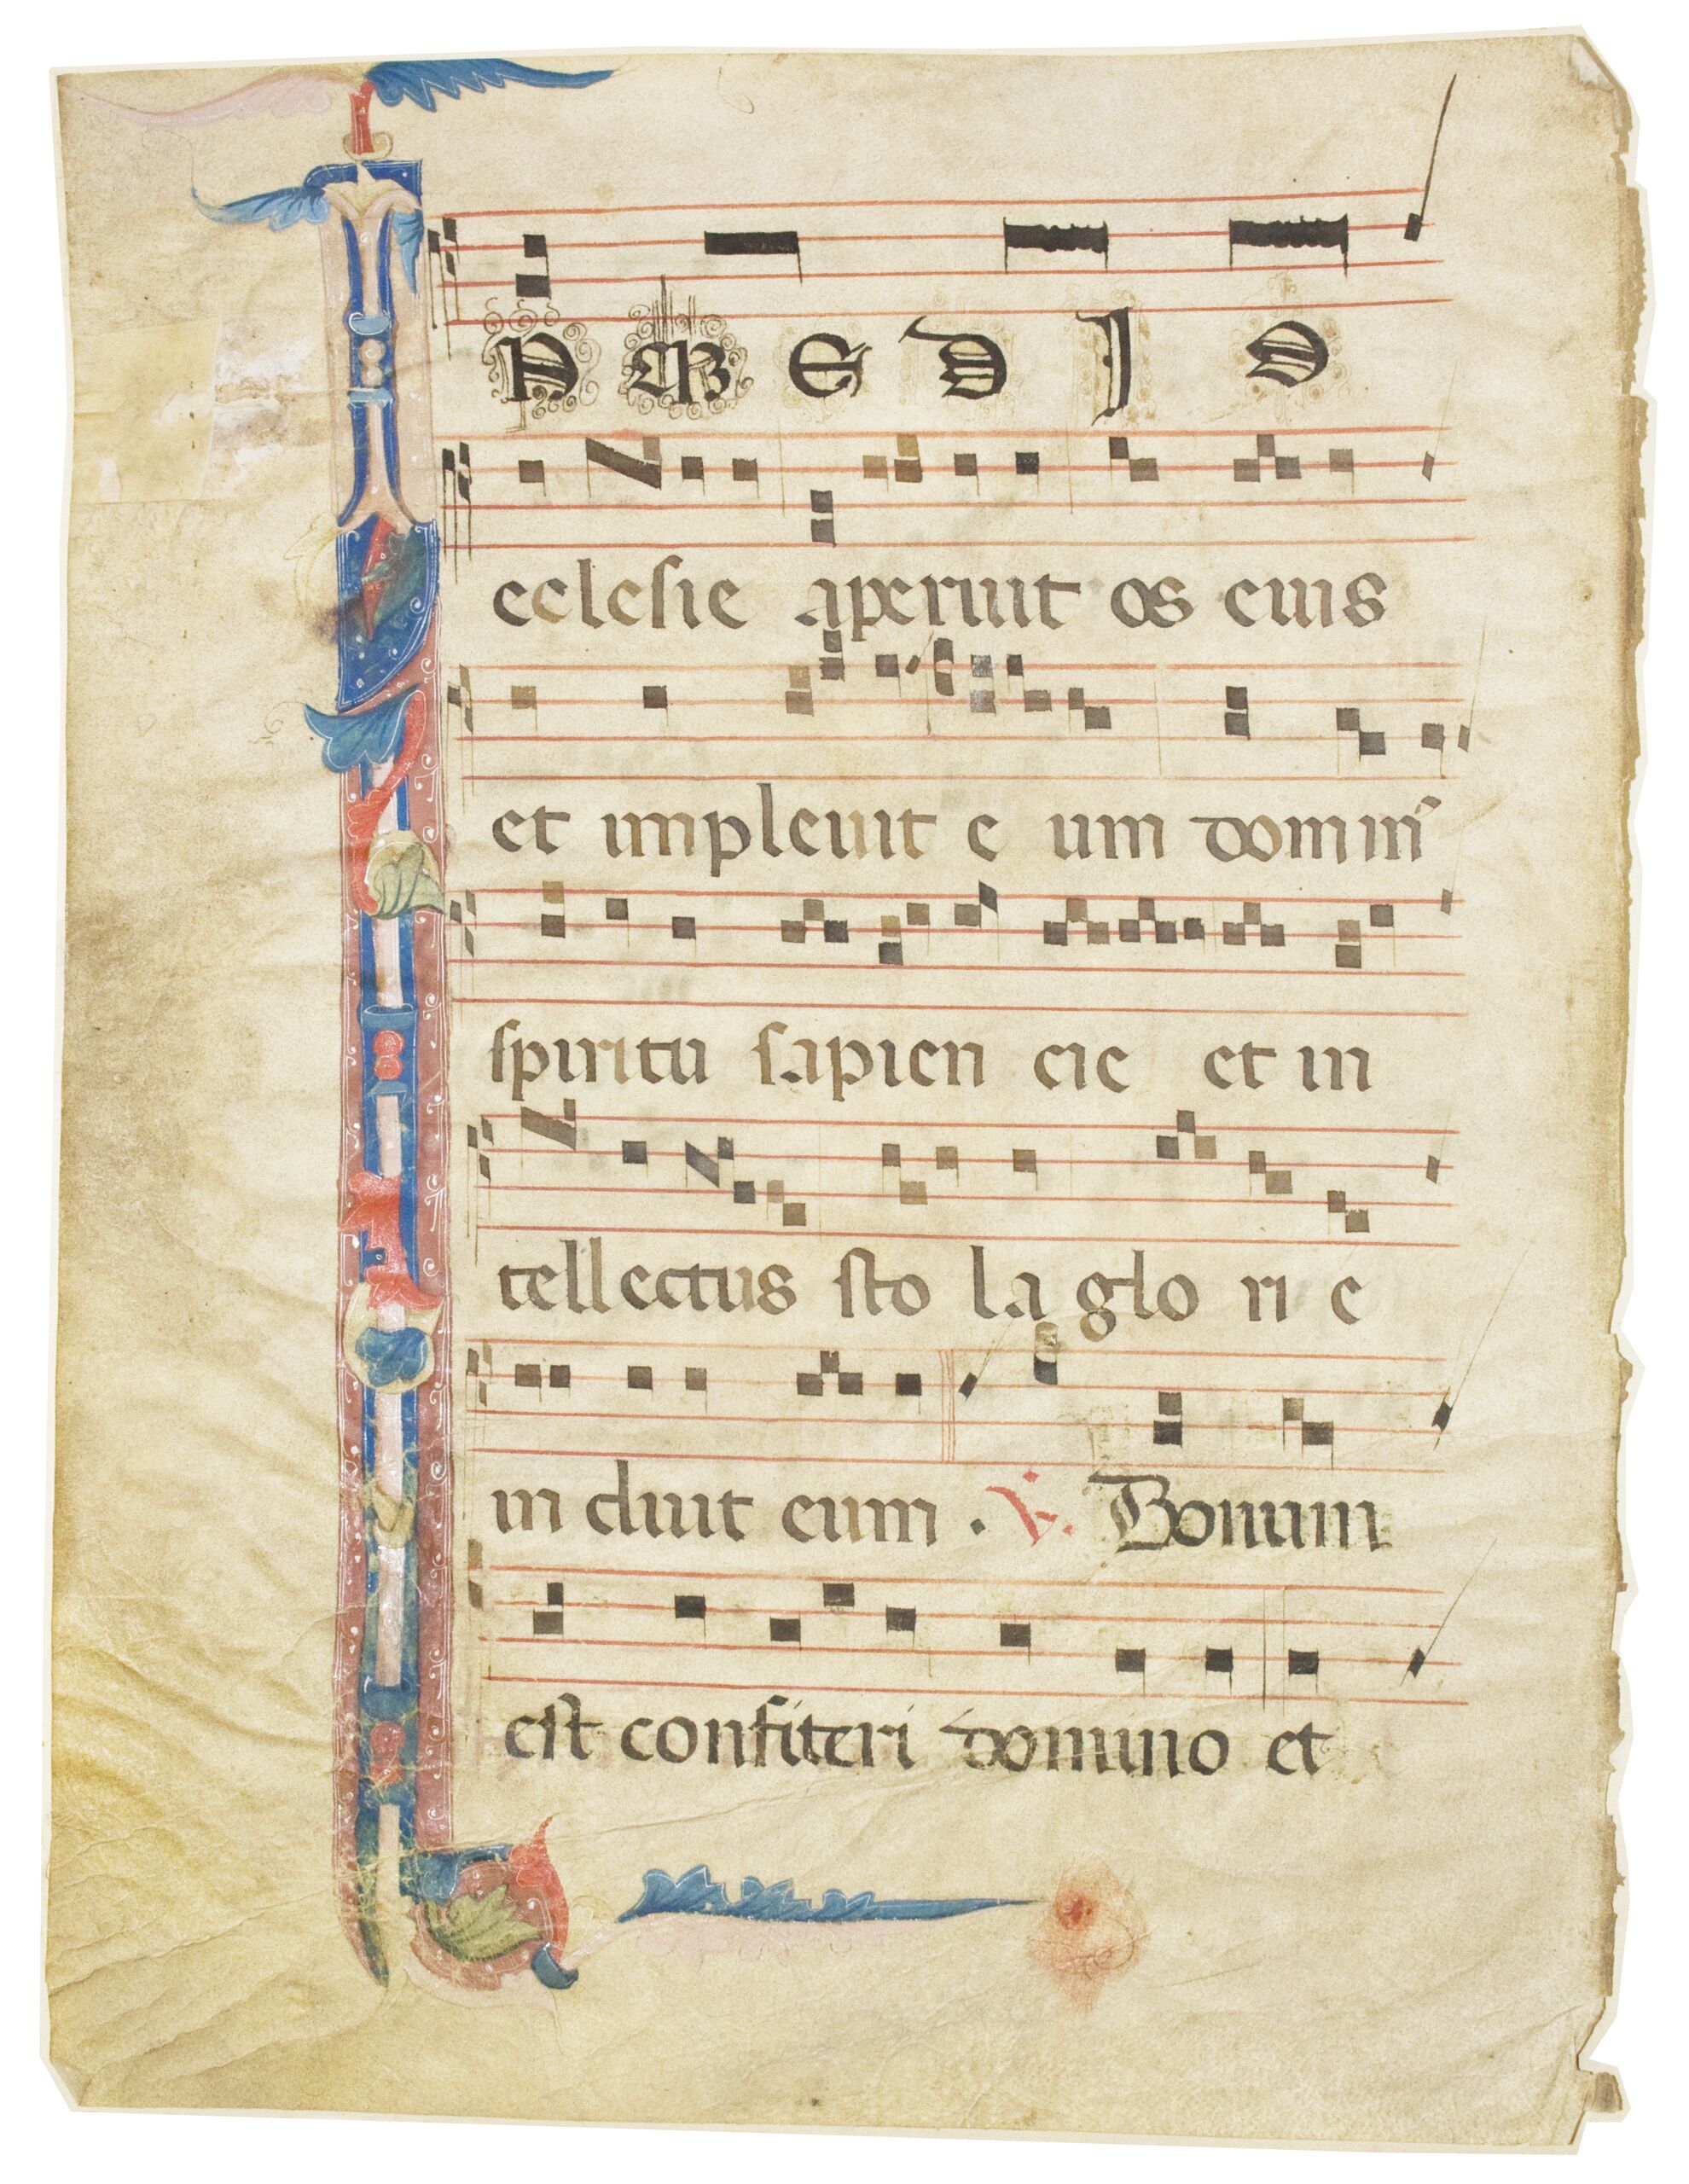 IN M E D I O
ecleſie aperuit os eius
et impleuit e um domin̄
ſpiritu ſapien cie et in
tellectus ſto la glo ri e
in duit eum . V. Bonum
eſt confiteri domino et